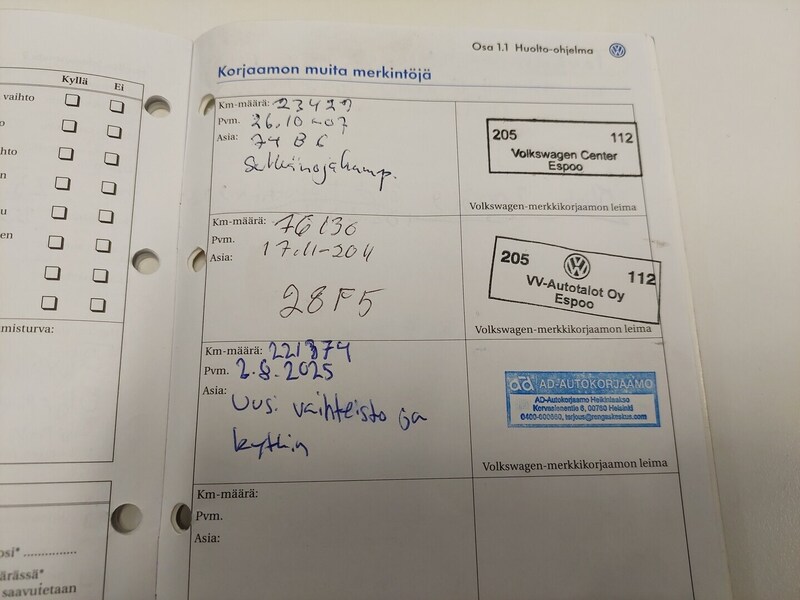 Kyllä Ei
vaihto
hto
n
u
en
misturva:
osi*
ärässä*
saavutetaan
Osa 1.1 Huolto-ohjelma
Korjaamon muita merkintöjä
Km-määrä: 23429
Pvm. 26.10-07
Asia: 74 B6
205 112
Volkswagen Center
Espoo
Volkswagen-merkkikorjaamon leima
Km-määrä: 76130
Pvm. 17.11-2011
Asia:
28F5
205 112
VV-Autotalot Oy
Espoo
Volkswagen-merkkikorjaamon leima
Km-määrä: 221874
Pvm. 2.8.2025
Asia: Uusi vaihteisto ja
kytkin
ad AD-AUTOKORJAAMO
AD-Autokorjaamo Heikinlaakso
00760 Helsinki
Volkswagen-merkkikorjaamon leima
Km-määrä:
Pvm.
Asia: